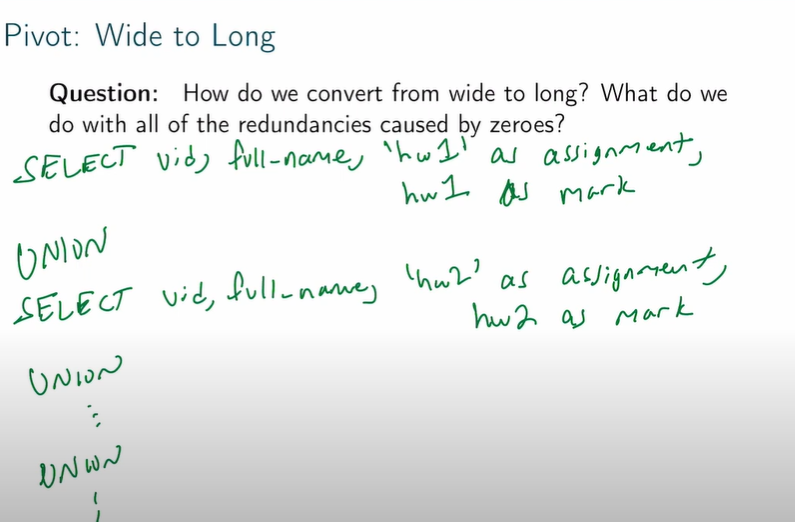 Pivot: Wide to Long
Question: How do we convert from wide to long? What do we
do with all of the redundancies caused by zeroes?
SELECT vid, full-name, 'hw1' as assignment,
hw1 As mark
UNION
SELECT vid, full-name, 'hw2' as assignment,
hw2 as mark
UNION
⋮
UNION